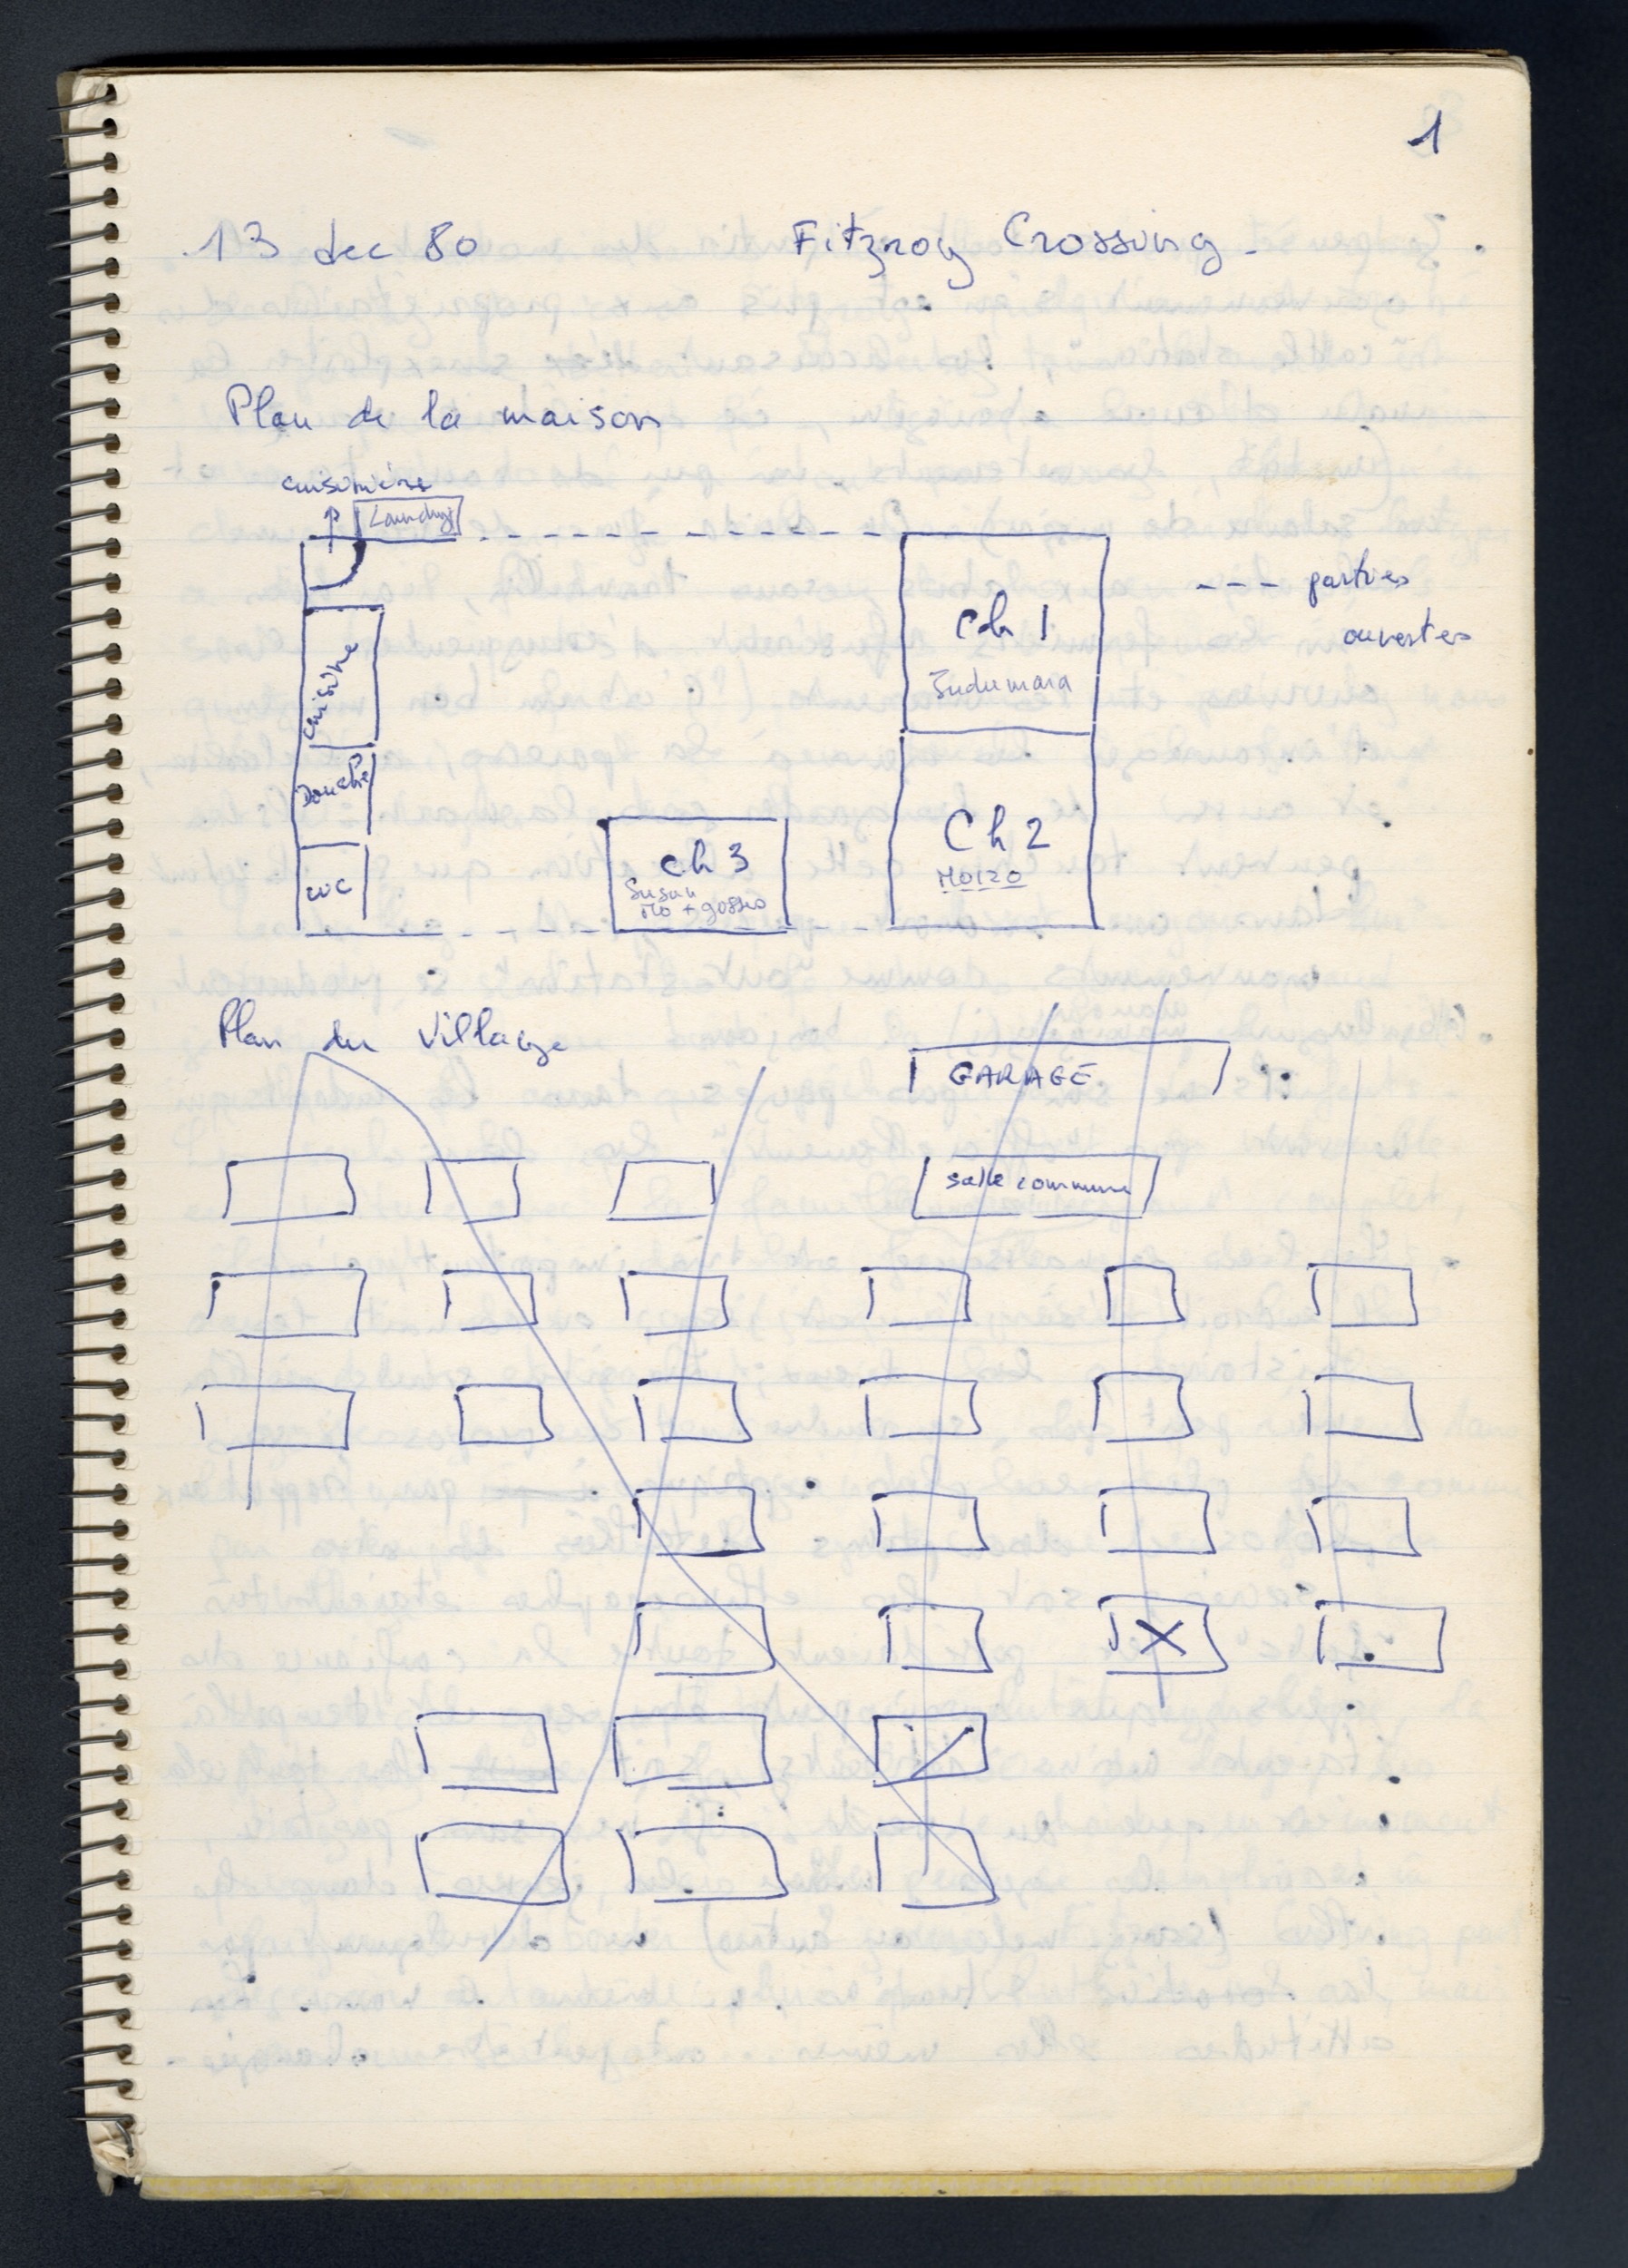 1
13 dec 80 Fitzroy Crossing.
Plan de la maison
cuisinière
Laundry
--- parties
ouvertes
Ch 1
cuisine
Douche
Ch 2
MOIZO
ch 3
Susan
Mo + gosses
WC
Plan du Village
GARAGE
salle commune